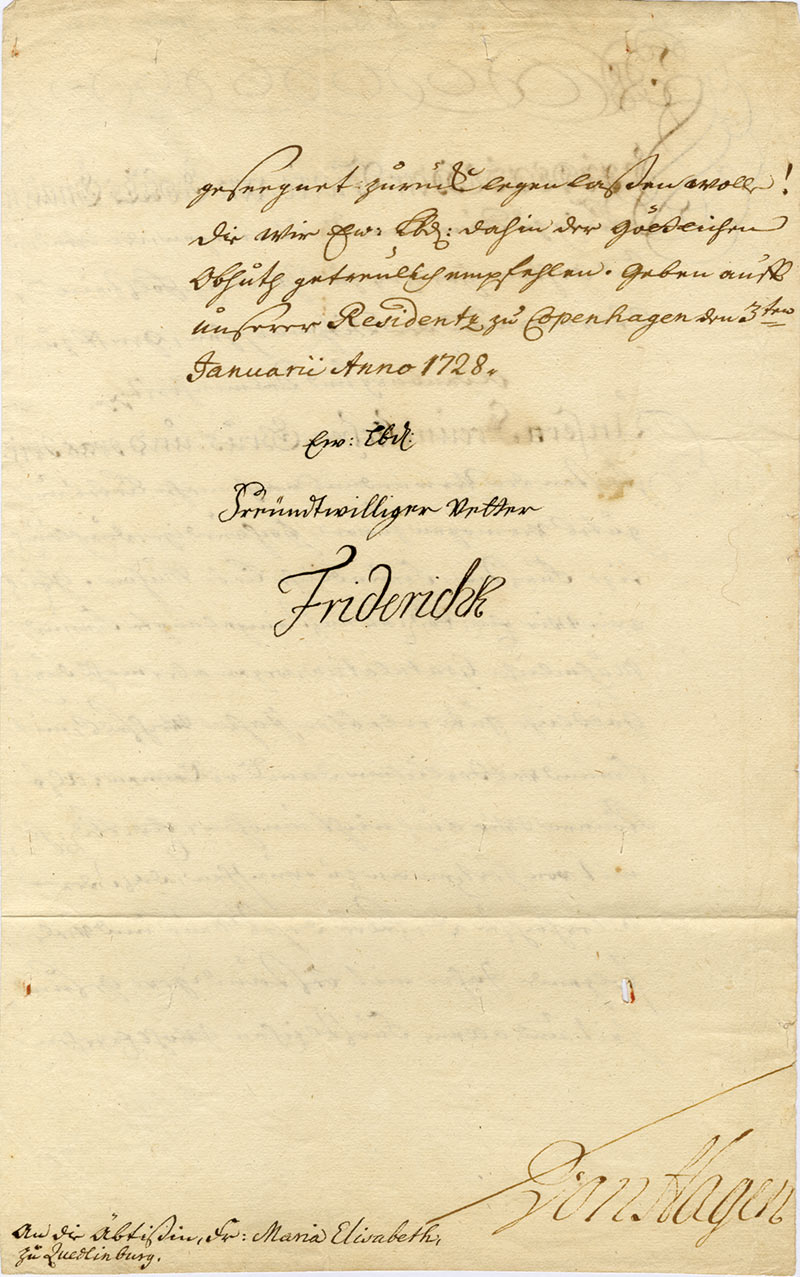 geseegnet zurück legen laßen wolle!
die wir Ew: Lbd: dahin der Göttlichen
Obhuth getreülich empfehlen. Geben auff
unserer Residentz zu Copenhagen den 3ten
Januarii Anno 1728.
Ew: Lbd:
Freündtwilliger Vetter
Friderich R
von Hagen
An die Äbtißin, Fr: Maria Elisabeth,
zu Quedlinburg.